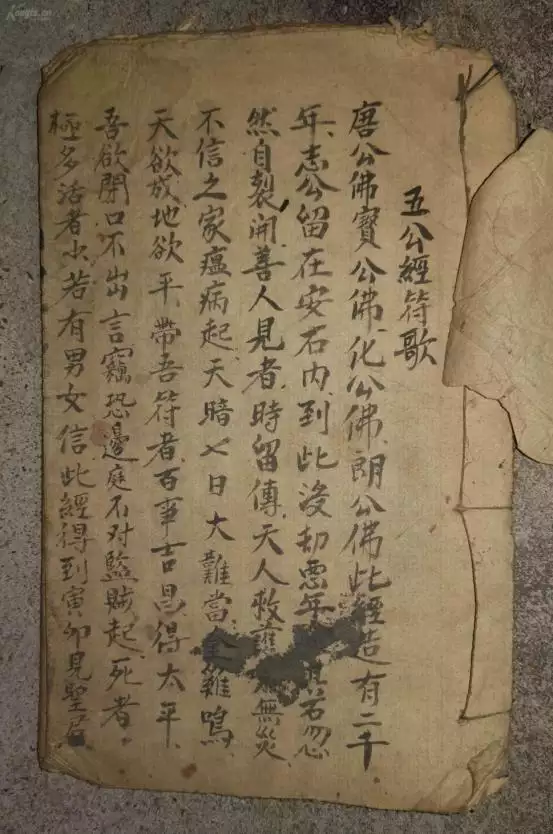 五公經符歌
唐公佛寶公佛化公佛朗公佛此經造有二千
年志公留在安石内到此没劫悪年其石忽
然自裂開善人見者時留傳天人救護無災
不信之家瘟病起天暗七日大難當金雞鳴
天欲放地欲平帶吾符者百事吉昌得太平
吾欲開口不出言竊恐邊庭不对監賊起死者
極多活者少若有男女信此經得到寅卯見聖君